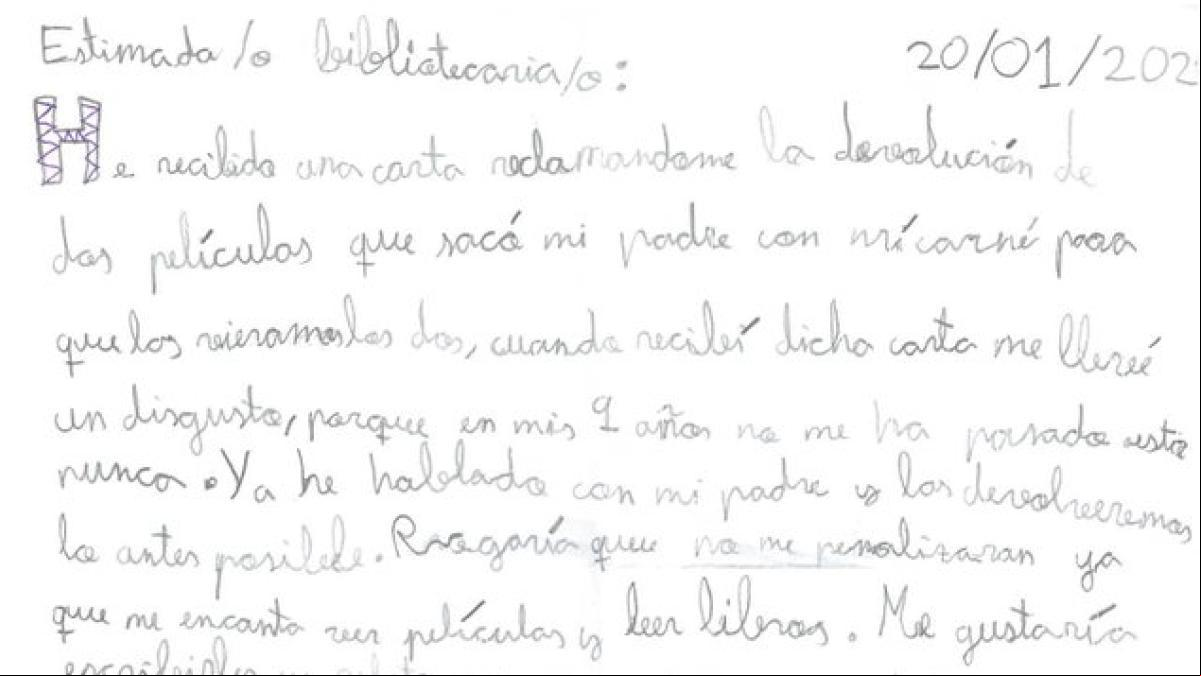 Estimada/o bibliotecaria/o:
20/01/202
He recibido una carta reclamandome la devolución de
dos películas que sacó mi padre con mi carné para
que las vieramos los dos, cuando recibí dicha carta me llevé
un disgusto, porque en mis 9 años no me ha pasado esto
nunca. Ya he hablado con mi padre y las devolveremos
lo antes posible. Rogaría que no me penalizaran ya
que me encanta ver películas y leer libros. Me gustaría